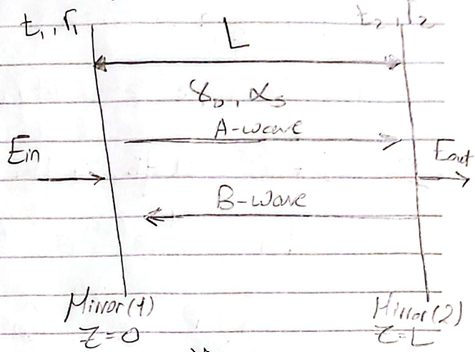 t₁, r₁
t₂, r₂
L
γ₀, αₛ
A-wave
Ein
Eout
B-wave
Mirror(1)
Mirror(2)
Z=0
Z=L